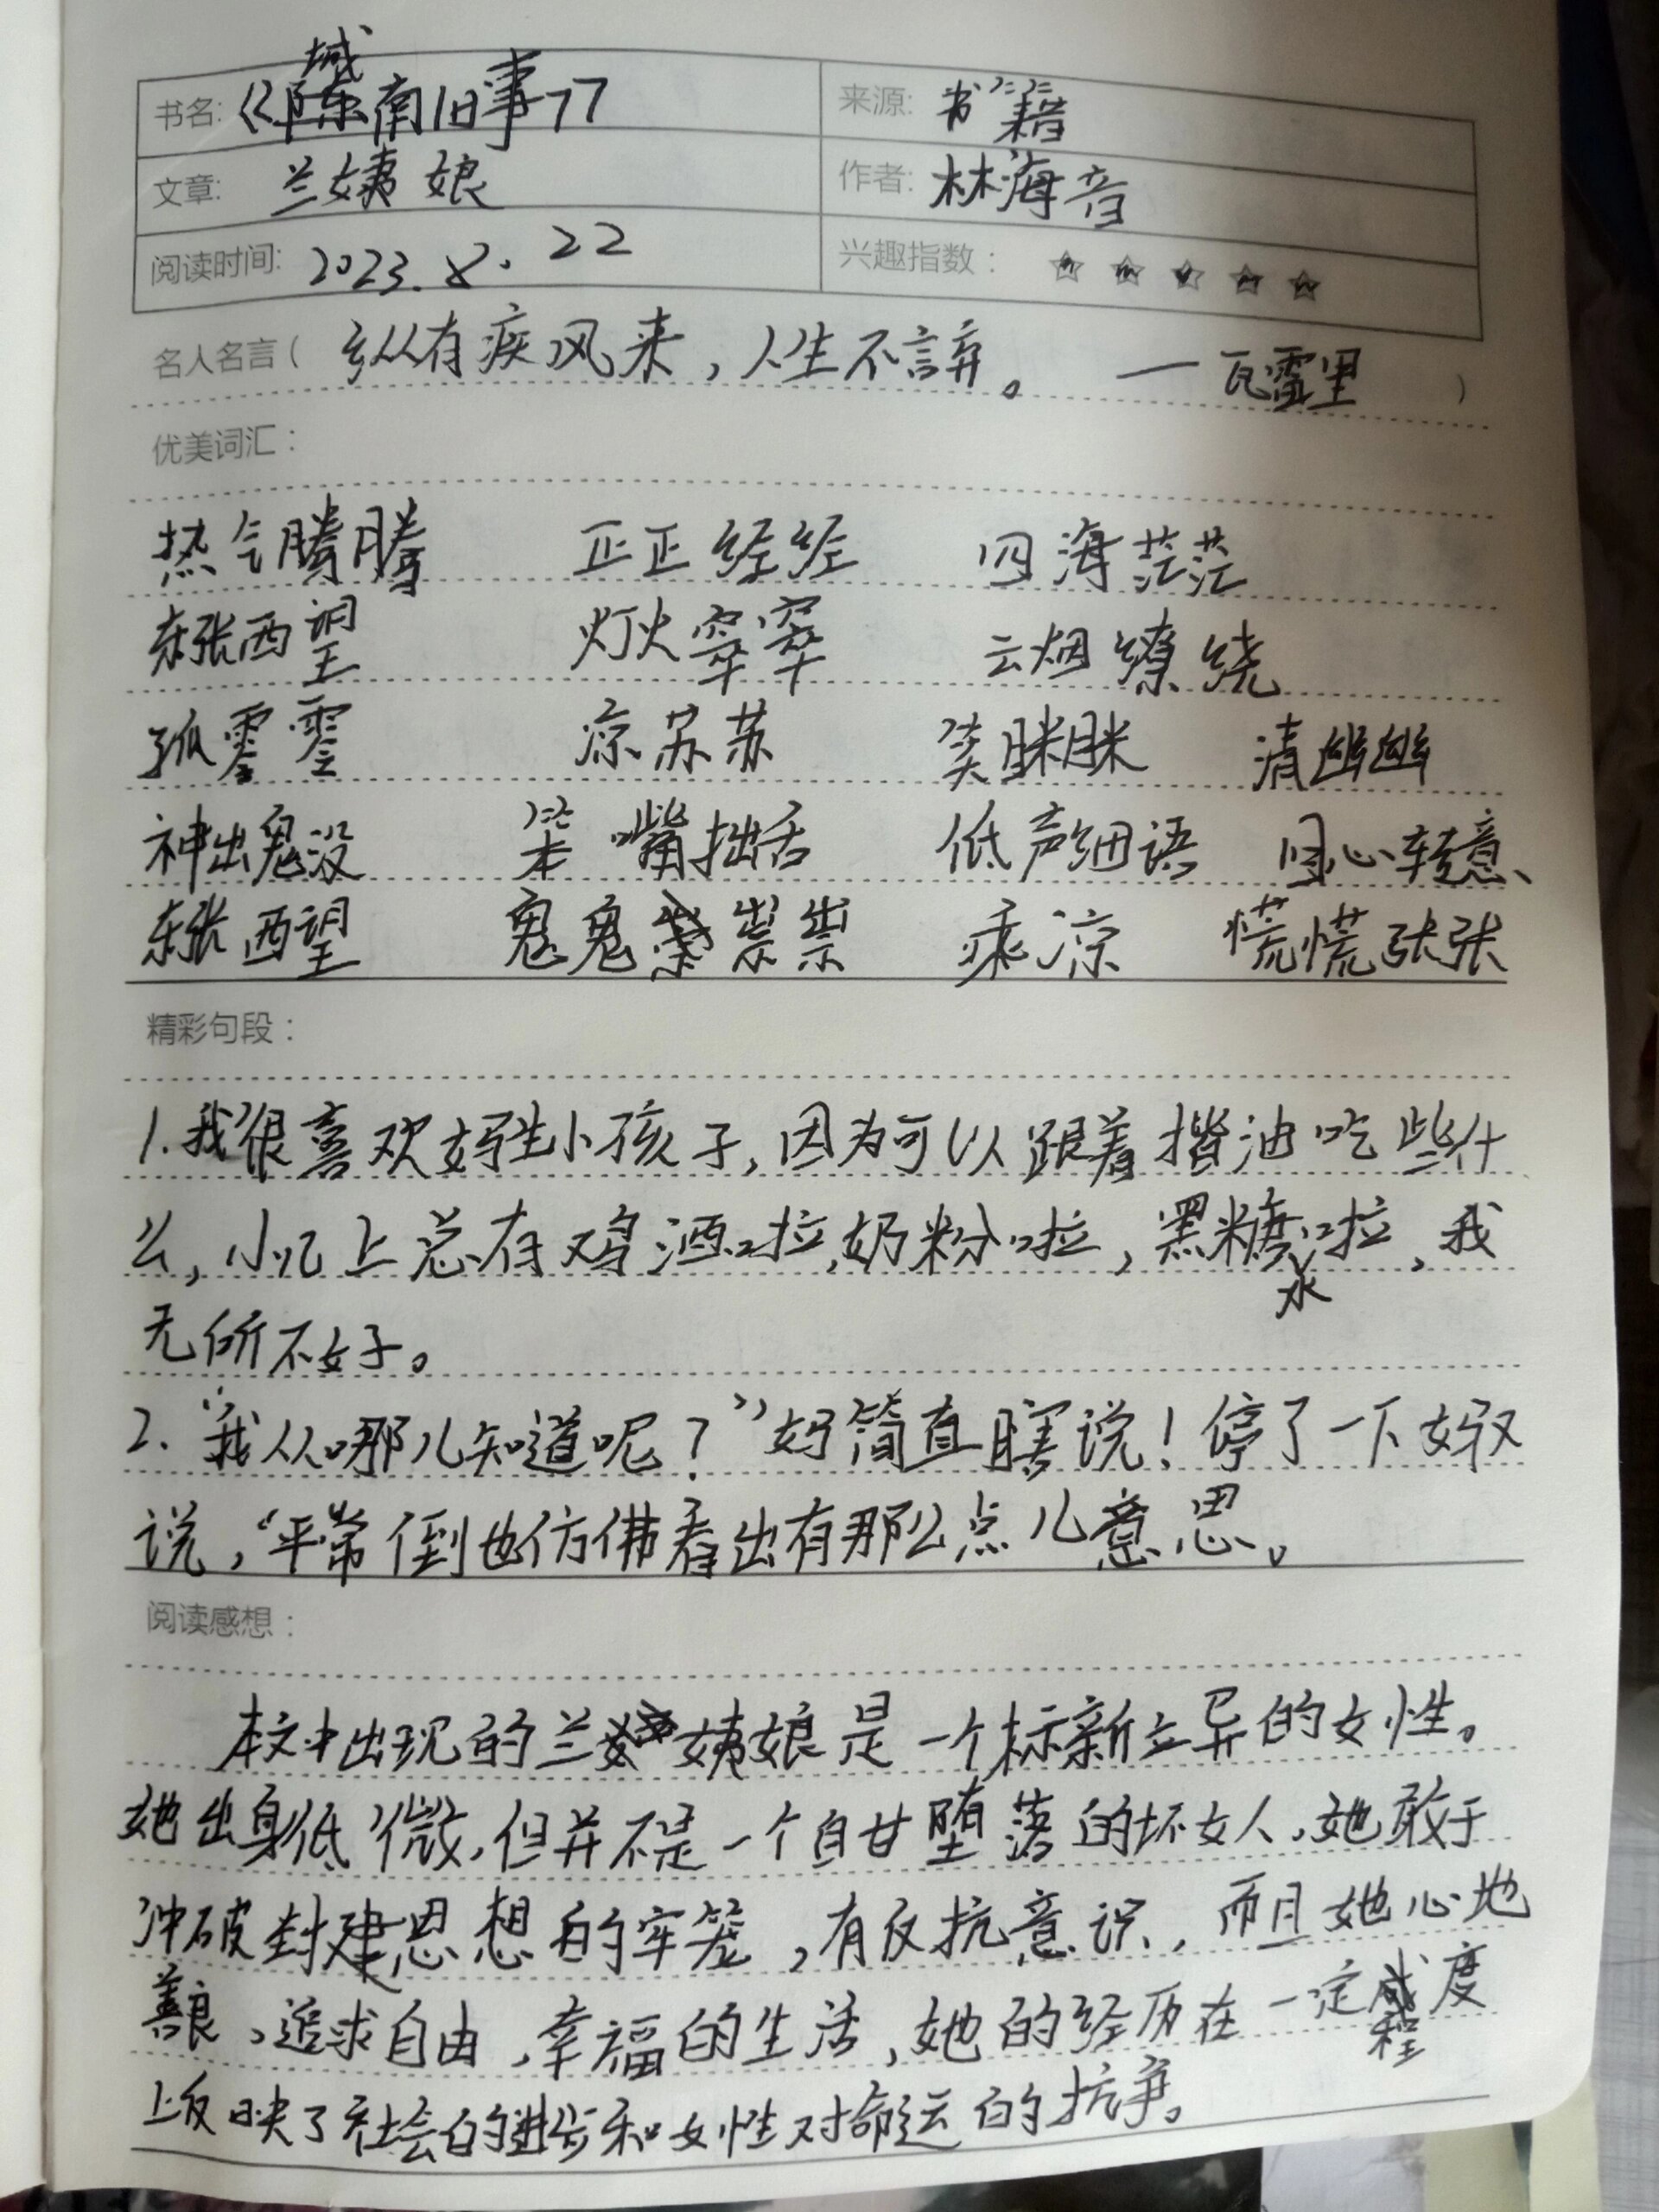 书名: 《城南旧事》 来源: 书籍
文章: 兰姨娘 作者: 林海音
阅读时间: 2023.8.22 兴趣指数: ☆☆☆☆☆
名人名言( 纵有疾风来，人生不言弃。 — 瓦雷里 )
优美词汇:
热气腾腾 正正经经 四海茫茫
东张西望 灯火 云烟缭绕
孤零零 凉苏苏 笑眯眯 清幽幽
神出鬼没 笨嘴拙舌 低声细语 回心转意、
东张西望 鬼鬼祟祟 乘凉 慌慌张张
精彩句段:
1.我很喜欢妈生小孩子,因为可以跟着揩油吃些什
么,小几上总有鸡酒啦,奶粉啦,黑糖水啦,我
无所不好。
2.“我从哪儿知道呢?”妈简直瞎说!停了一下妈又
说,“平常倒也仿佛看出有那么点儿意思。
阅读感想:
本文中出现的兰姨娘是一个标新立异的女性。
她出身低微,但并不是一个自甘堕落的坏女人,她敢于
冲破封建思想的牢笼,有反抗意识,而且她心地
善良,追求自由,幸福的生活,她的经历在一定程度
上反映了社会的进步和女性对命运的抗争。